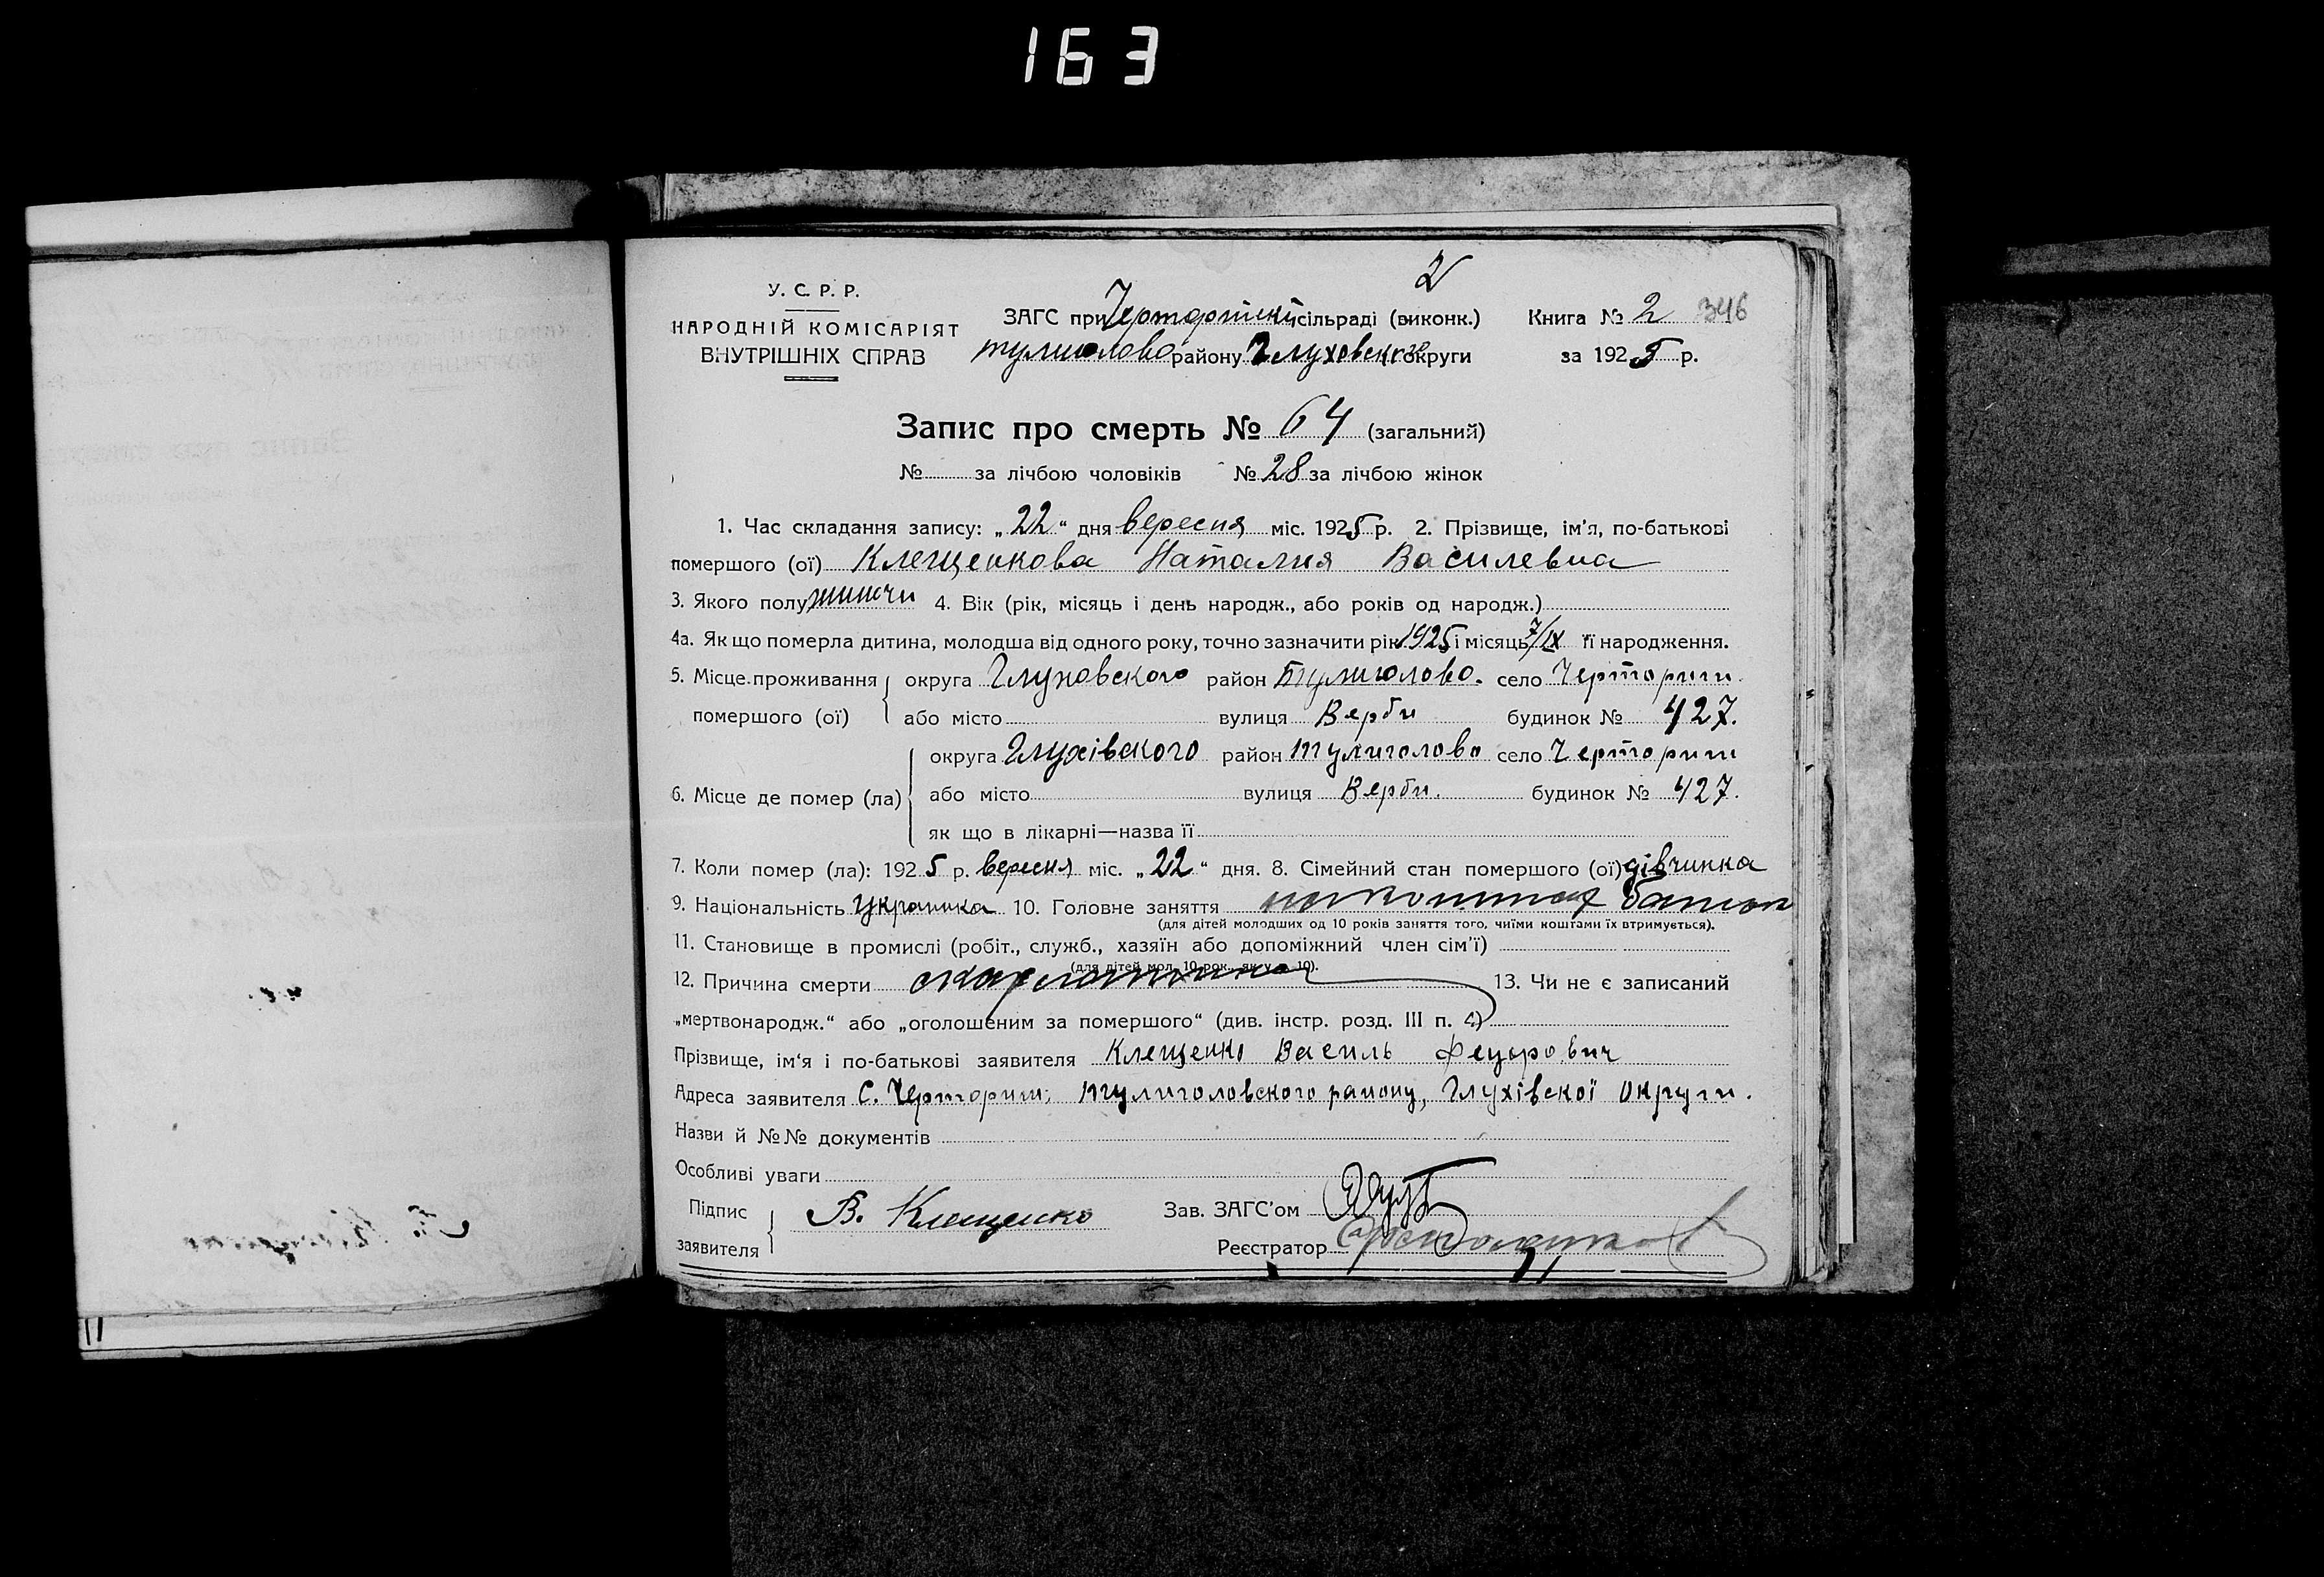 163
2
У. С. Р. Р.
НАРОДНІЙ КОМІСАРІЯТ
ВНУТРІШНІХ СПРАВ
ЗАГС при сільраді (виконк.)
району Глуховського округи
Книга № 2 346
за 1925 р.
Запис про смерть № 64 (загальний)
№ за лічбою чоловіків № 28 за лічбою жінок
1. Час складання запису: „22“ дня вересня міс. 1925 р. 2. Прізвище, ім'я, по-батькові
помершого (ої) Клещенкова Наталия Василевна
3. Якого полу жиночи 4. Вік (рік, місяць і день народж., або років од народж.)
4а. Як що померла дитина, молодша від одного року, точно зазначити рік 1925 і місяць 7/IX її народження.
5. Місце проживання округа Глуховского район Тулиголово. село Черториги.
помершого (ої) або місто вулиця Верби будинок № 427.
округа Глухівского район тулиголово село Черториги
6. Місце де помер (ла) або місто вулиця Верби. будинок № 427.
як що в лікарні—назва її
7. Коли помер (ла): 1925 р. вересня міс. „22“ дня. 8. Сімейний стан помершого (ої) дівчинка
9. Національність украинка 10. Головне заняття
(для дітей молодших од 10 років заняття того, чиїми коштами їх втримується).
11. Становище в промислі (робіт., служб., хазяїн або допоміжний член сім'ї)
(для дітей мол. 10 рок., як у п. 10).
12. Причина смерти скарлатина 13. Чи не є записаний
„мертвонародж.“ або „оголошеним за помершого“ (див. інстр. розд. III п. 4)
Прізвище, ім'я і по-батькові заявителя Клещенко Василь Федорович
Адреса заявителя С. Черториги; тулиголовского району, Глухівскої округи.
Назви й №№ документів
Особливі уваги
Підпис
заявителя
В. Клещенко
Зав. ЗАГС'ом
Реєстратор